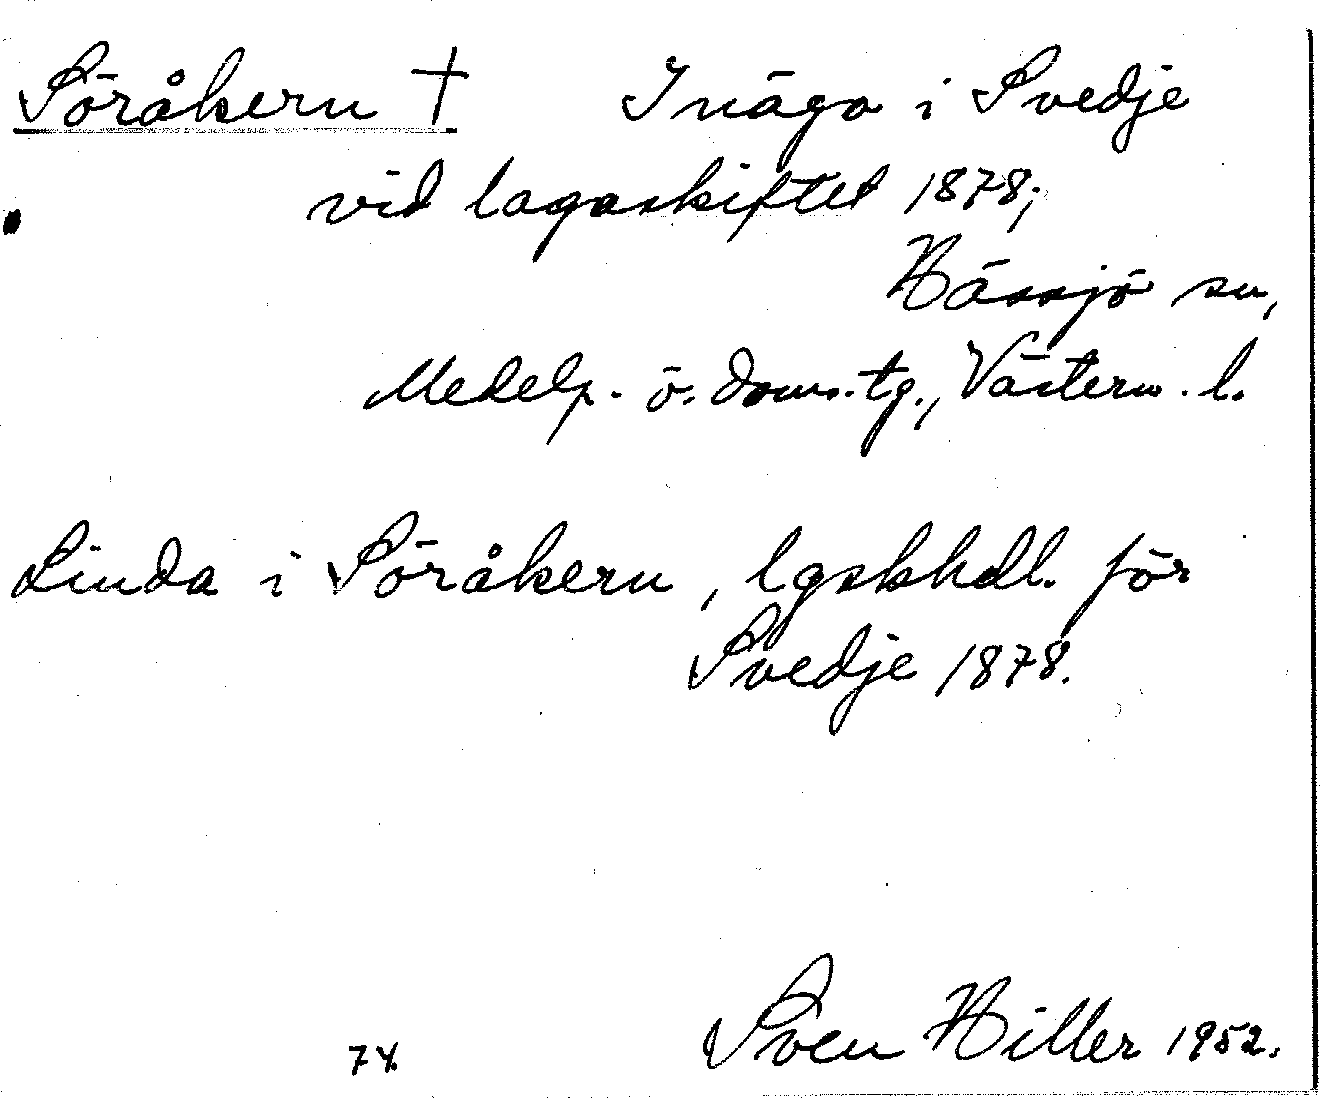 Söråkern † Inäga i Svedje
vid lagaskiftet 1878;
Hässjö sn,
Medelp. ö. doms.tg., Västern. l.
Linda i Söråkern, lgskhdl. för
Svedje 1878.
74. Sven Hiller 1952.